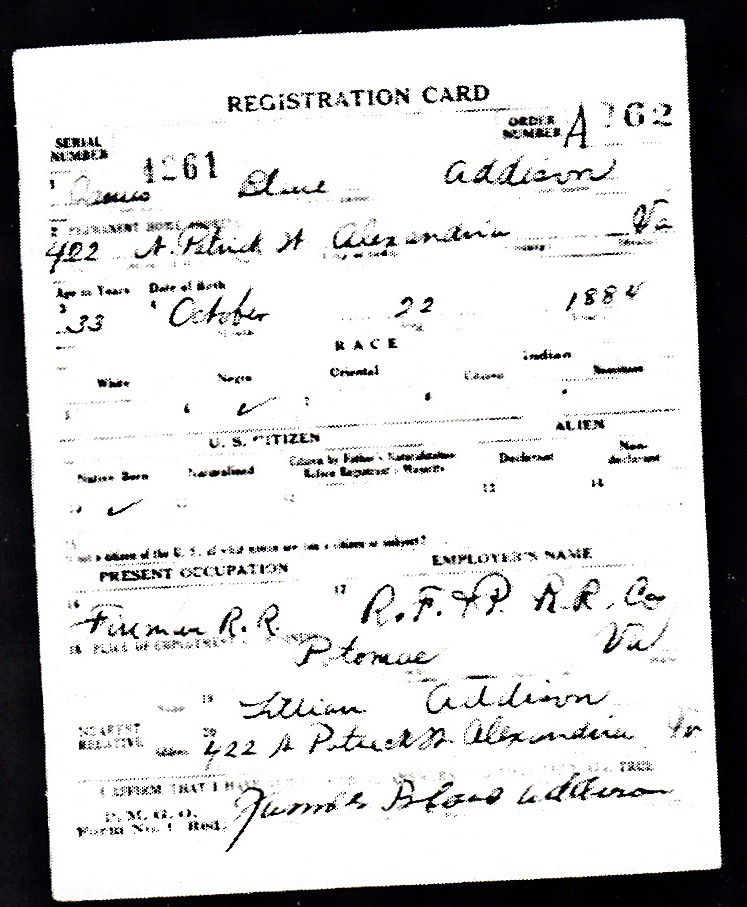 REGISTRATION CARD
SERIAL NUMBER 1261 ORDER NUMBER A 262
1 James Addison
2 PERMANENT HOME
422 N. Patrick St Alexandria Va
Age in Years Date of Birth
3 33 4 October 22 1884
RACE
White Negro Oriental Indian
Citizen
5 6 ✓ 7 8 9
U. S. CITIZEN ALIEN
Native Born Naturalized Citizen by Father's Naturalization Before Registrant's Majority Declarant Non-declarant
10 ✓ 11 12 13 14
15 not a citizen of the U. S., of what nation are you a citizen or subject?
PRESENT OCCUPATION EMPLOYER'S NAME
16 Fireman R. R. 17 R. F. & P. R. R. Co
18 PLACE OF EMPLOYMENT
Potomac Va
19 Lillian Addison
NEAREST RELATIVE 20 422 N Patrick St Alexandria Va
I AFFIRM THAT I HAVE TRUE
P. M. G. O.
Form No. 1 Red. James Addison